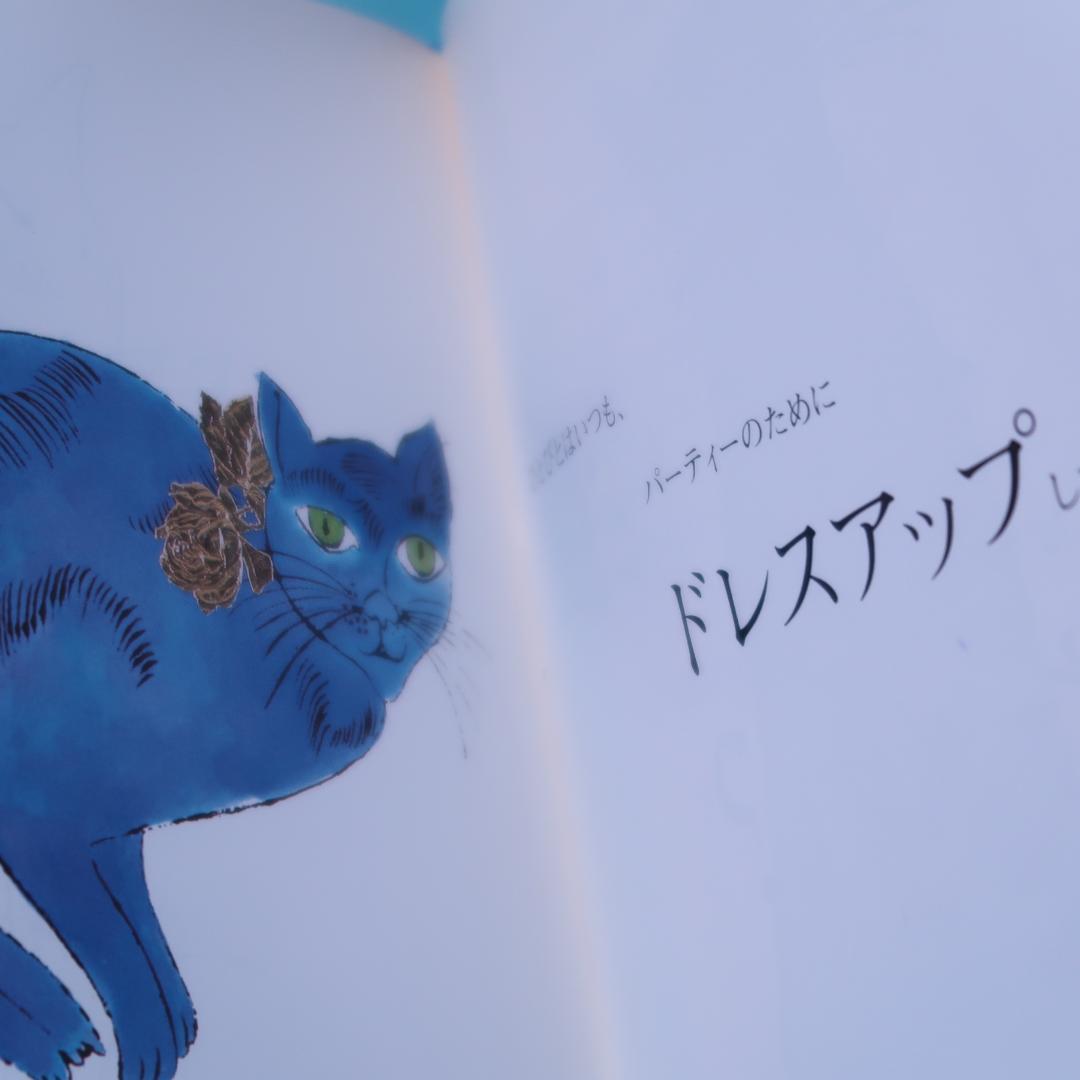 はいつも、
パーティーのために
ドレスアップし